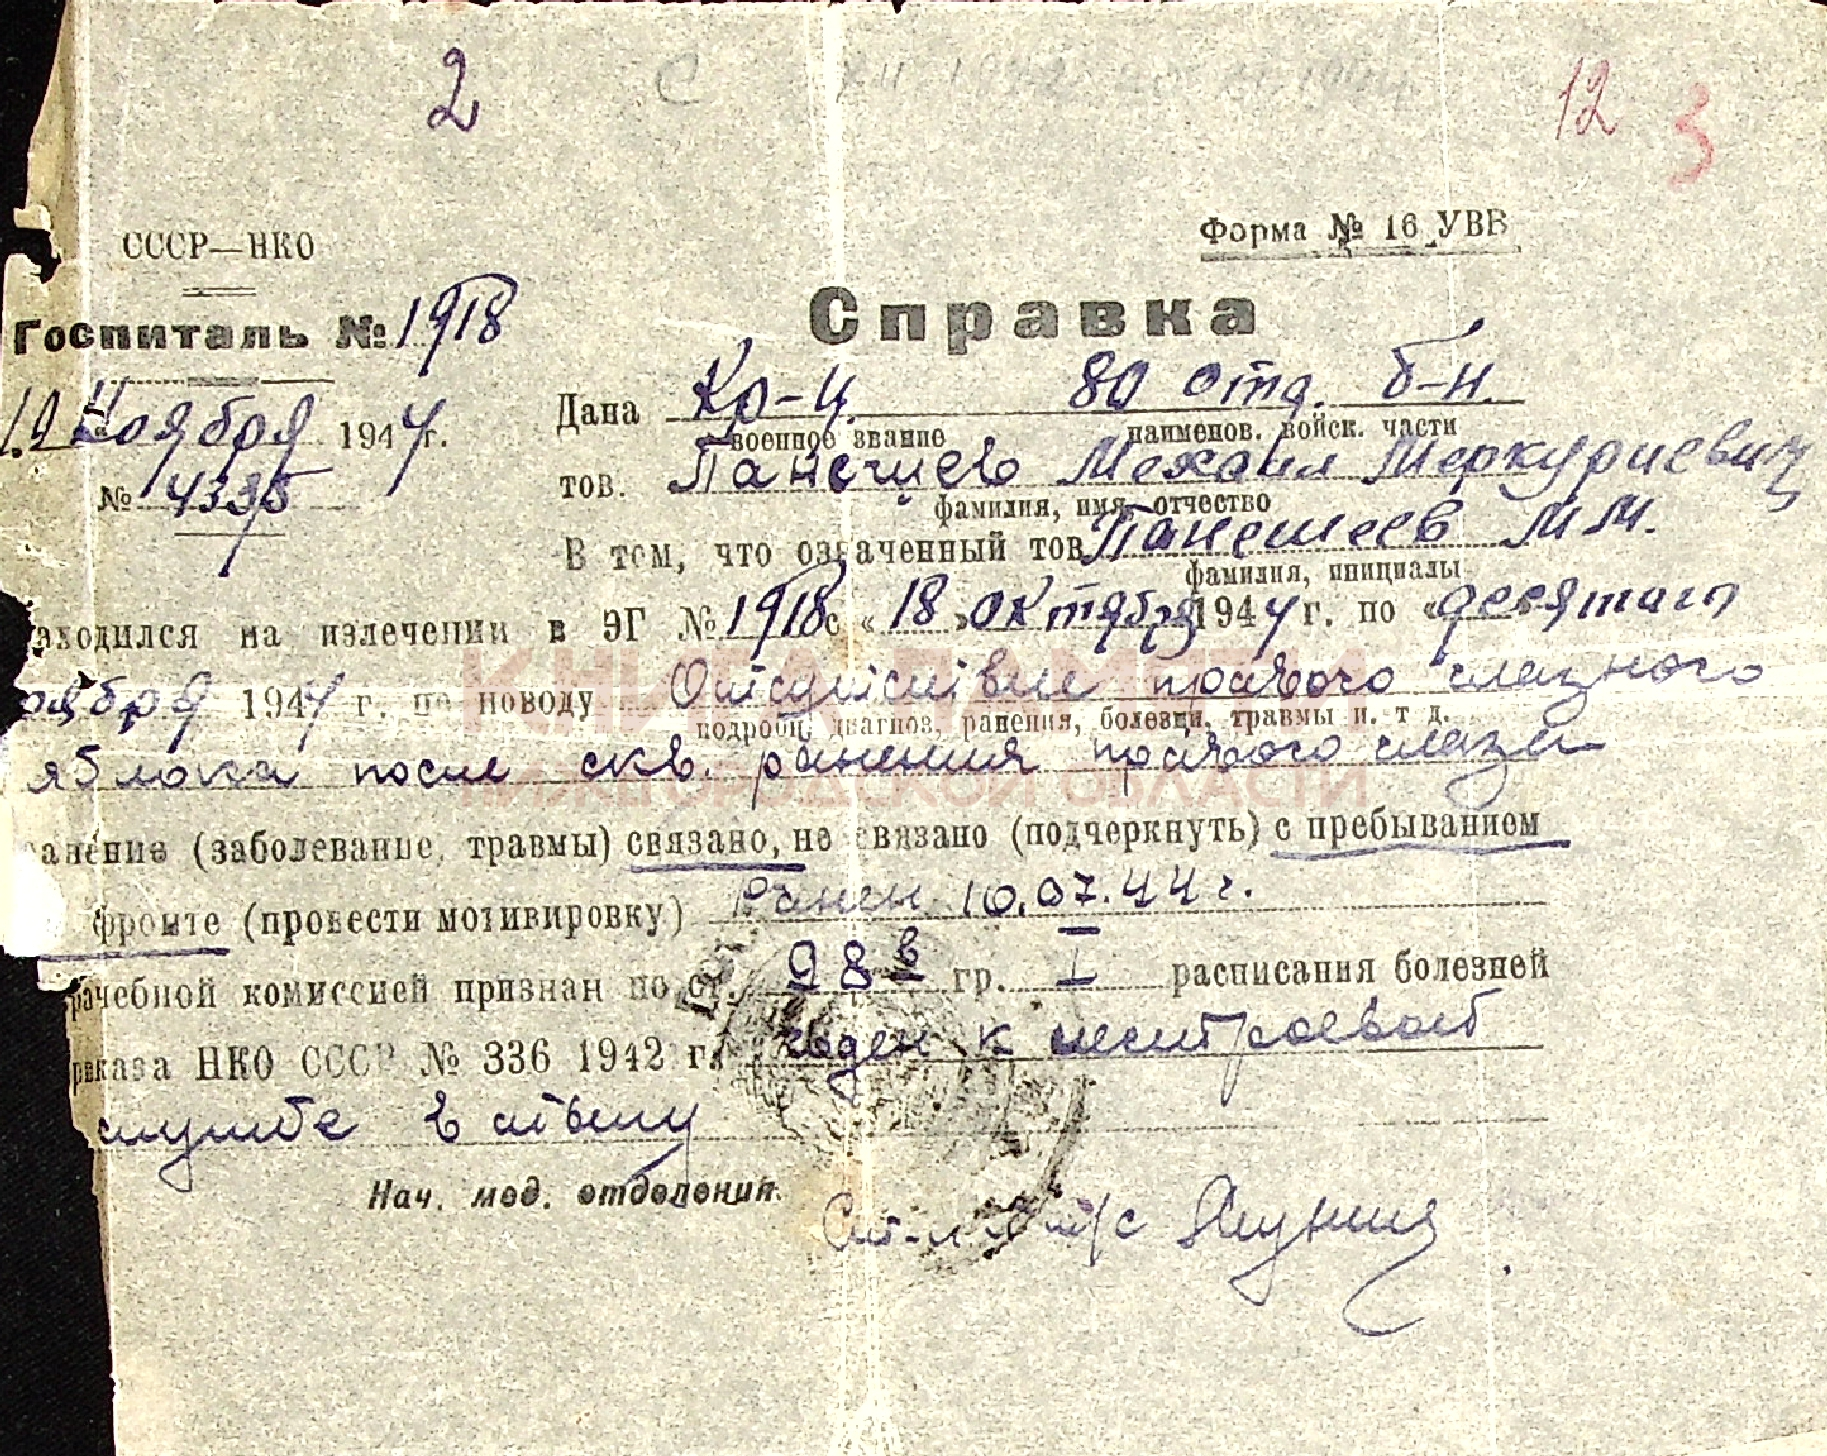 2
12 3
СССР—НКО
Форма № 16 УВВ
Госпиталь № 1918
Справка
12 Ноября 1944 г.
№ 4335
Дана Кр-ц. 80 отд. б-н.
военное звание наименов. войск. части
тов. Панешев Михаил Меркуриевич
фамилия, имя, отчество
В том, что означенный тов. Панешеев М М.
фамилия, инициалы
аходился на излечении в ЭГ № 1918 с «18» октября 1944 г. по «десятого
оября 1944 г. по поводу Отсутствие правого глазного
подробн. диагноз, ранения, болезни, травмы и. т д.
яблока после скв. ранения правого глаза
КНИГА ПАМЯТИ
НИЖЕГОРОДСКОЙ ОБЛАСТИ
анение (заболевание, травмы) связано, не связано (подчеркнуть) с пребыванием
фронте (провести мотивировку) Ранен 10.07.44 г.
рачебной комиссией признан по ст. 98 в гр. I расписания болезней
риказа НКО СССР № 336 1942 г. годен к нестроевой
службе в тылу
Нач. мед. отделения.
Ст. л-т м/с